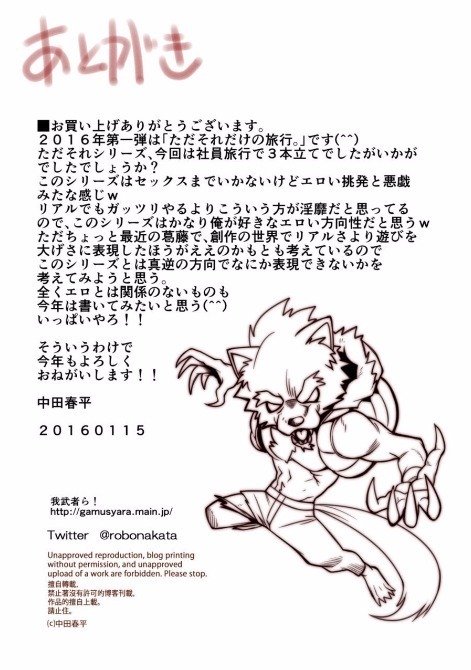 あとがき
■お買い上げありがとうございます。
２０１６年第一弾は「ただそれだけの旅行。」です(^^)
ただそれシリーズ、今回は社員旅行で３本立てでしたがいかが
でしたでしょうか？
このシリーズはセックスまでいかないけどエロい挑発と悪戯
みたな感じｗ
リアルでもガッツリやるよりこういう方が淫靡だと思ってる
ので、このシリーズはかなり俺が好きなエロい方向性だと思うｗ
ただちょっと最近の葛藤で、創作の世界でリアルさより遊びを
大げさに表現したほうがええのかもとも考えているので
このシリーズとは真逆の方向でなにか表現できないかを
考えてみようと思う。
全くエロとは関係のないものも
今年は書いてみたいと思う(^^)
いっぱいやろ！！
そういうわけで
今年もよろしく
おねがいします！！
中田春平
２０１６０１１５
我武者ら！
http://gamusyara.main.jp/
Twitter　@robonakata
Unapproved reproduction, blog printing
without permission, and unapproved
upload of a work are forbidden. Please stop.
擅自轉載.
禁止著沒有許可的博客刊載,
作品的擅自上載。
請止住。
(c)中田春平